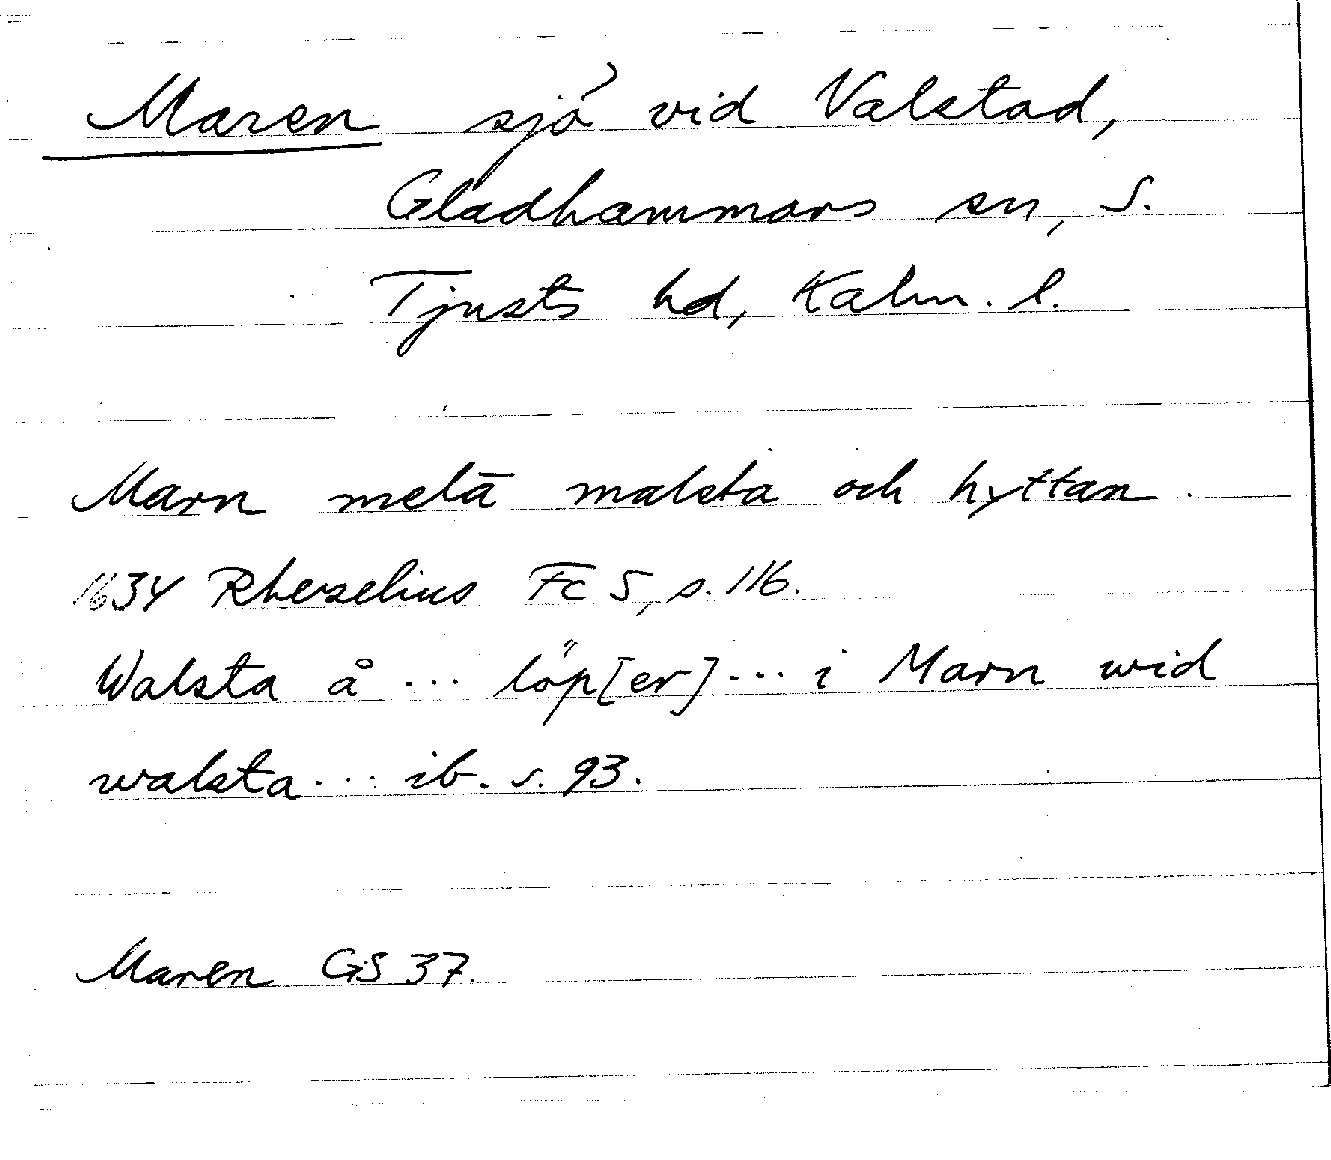 Maren sjö vid Valstad,
Gladhammars sn, S.
Tjusts hd, Kalm. l.
Marn melā malsta och hyttan
1634 Rhezelius Fc 5, s. 116.
Walsta å ... löp[er] ... i Marn wid
walsta ... ib. s. 93.
Maren GS 37.